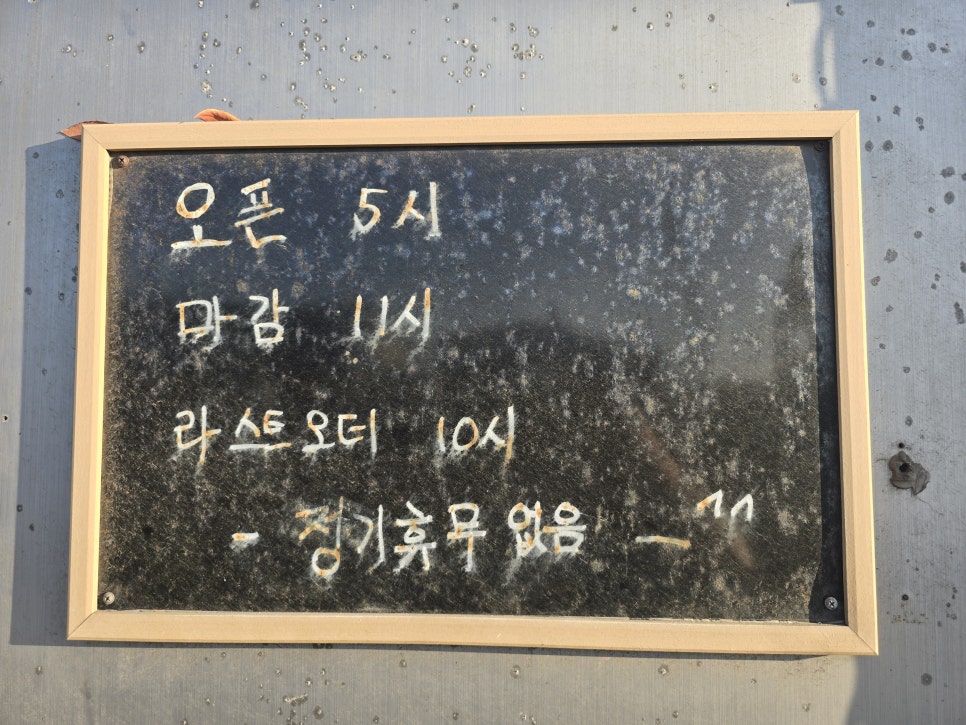 오픈 5시
마감 11시
라스트오더 10시
- 정기휴무 없음 - ^^